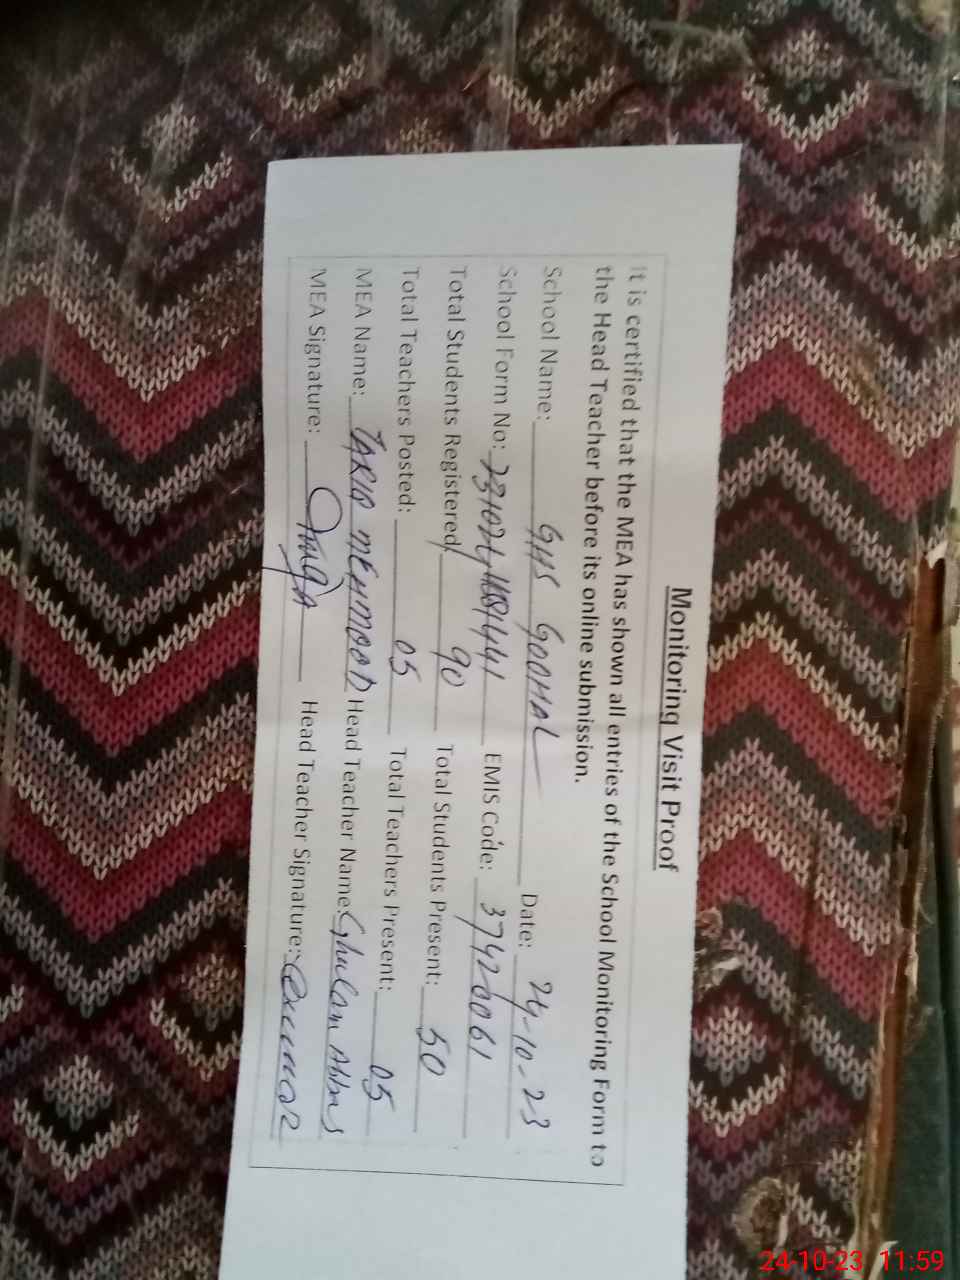 Monitoring Visit Proof
It is certified that the MEA has shown all entries of the School Monitoring Form to
the Head Teacher before its online submission.
School Name: GHS GOOHAL Date: 24-10-23
School Form No: EMIS Code: 37420061
Total Students Registered: 90 Total Students Present: 50
Total Teachers Posted: 05 Total Teachers Present: 05
MEA Name: TARIQ MEHMOOD Head Teacher Name: Ghulam Abbas
MEA Signature: Head Teacher Signature:
24-10-23 11:59